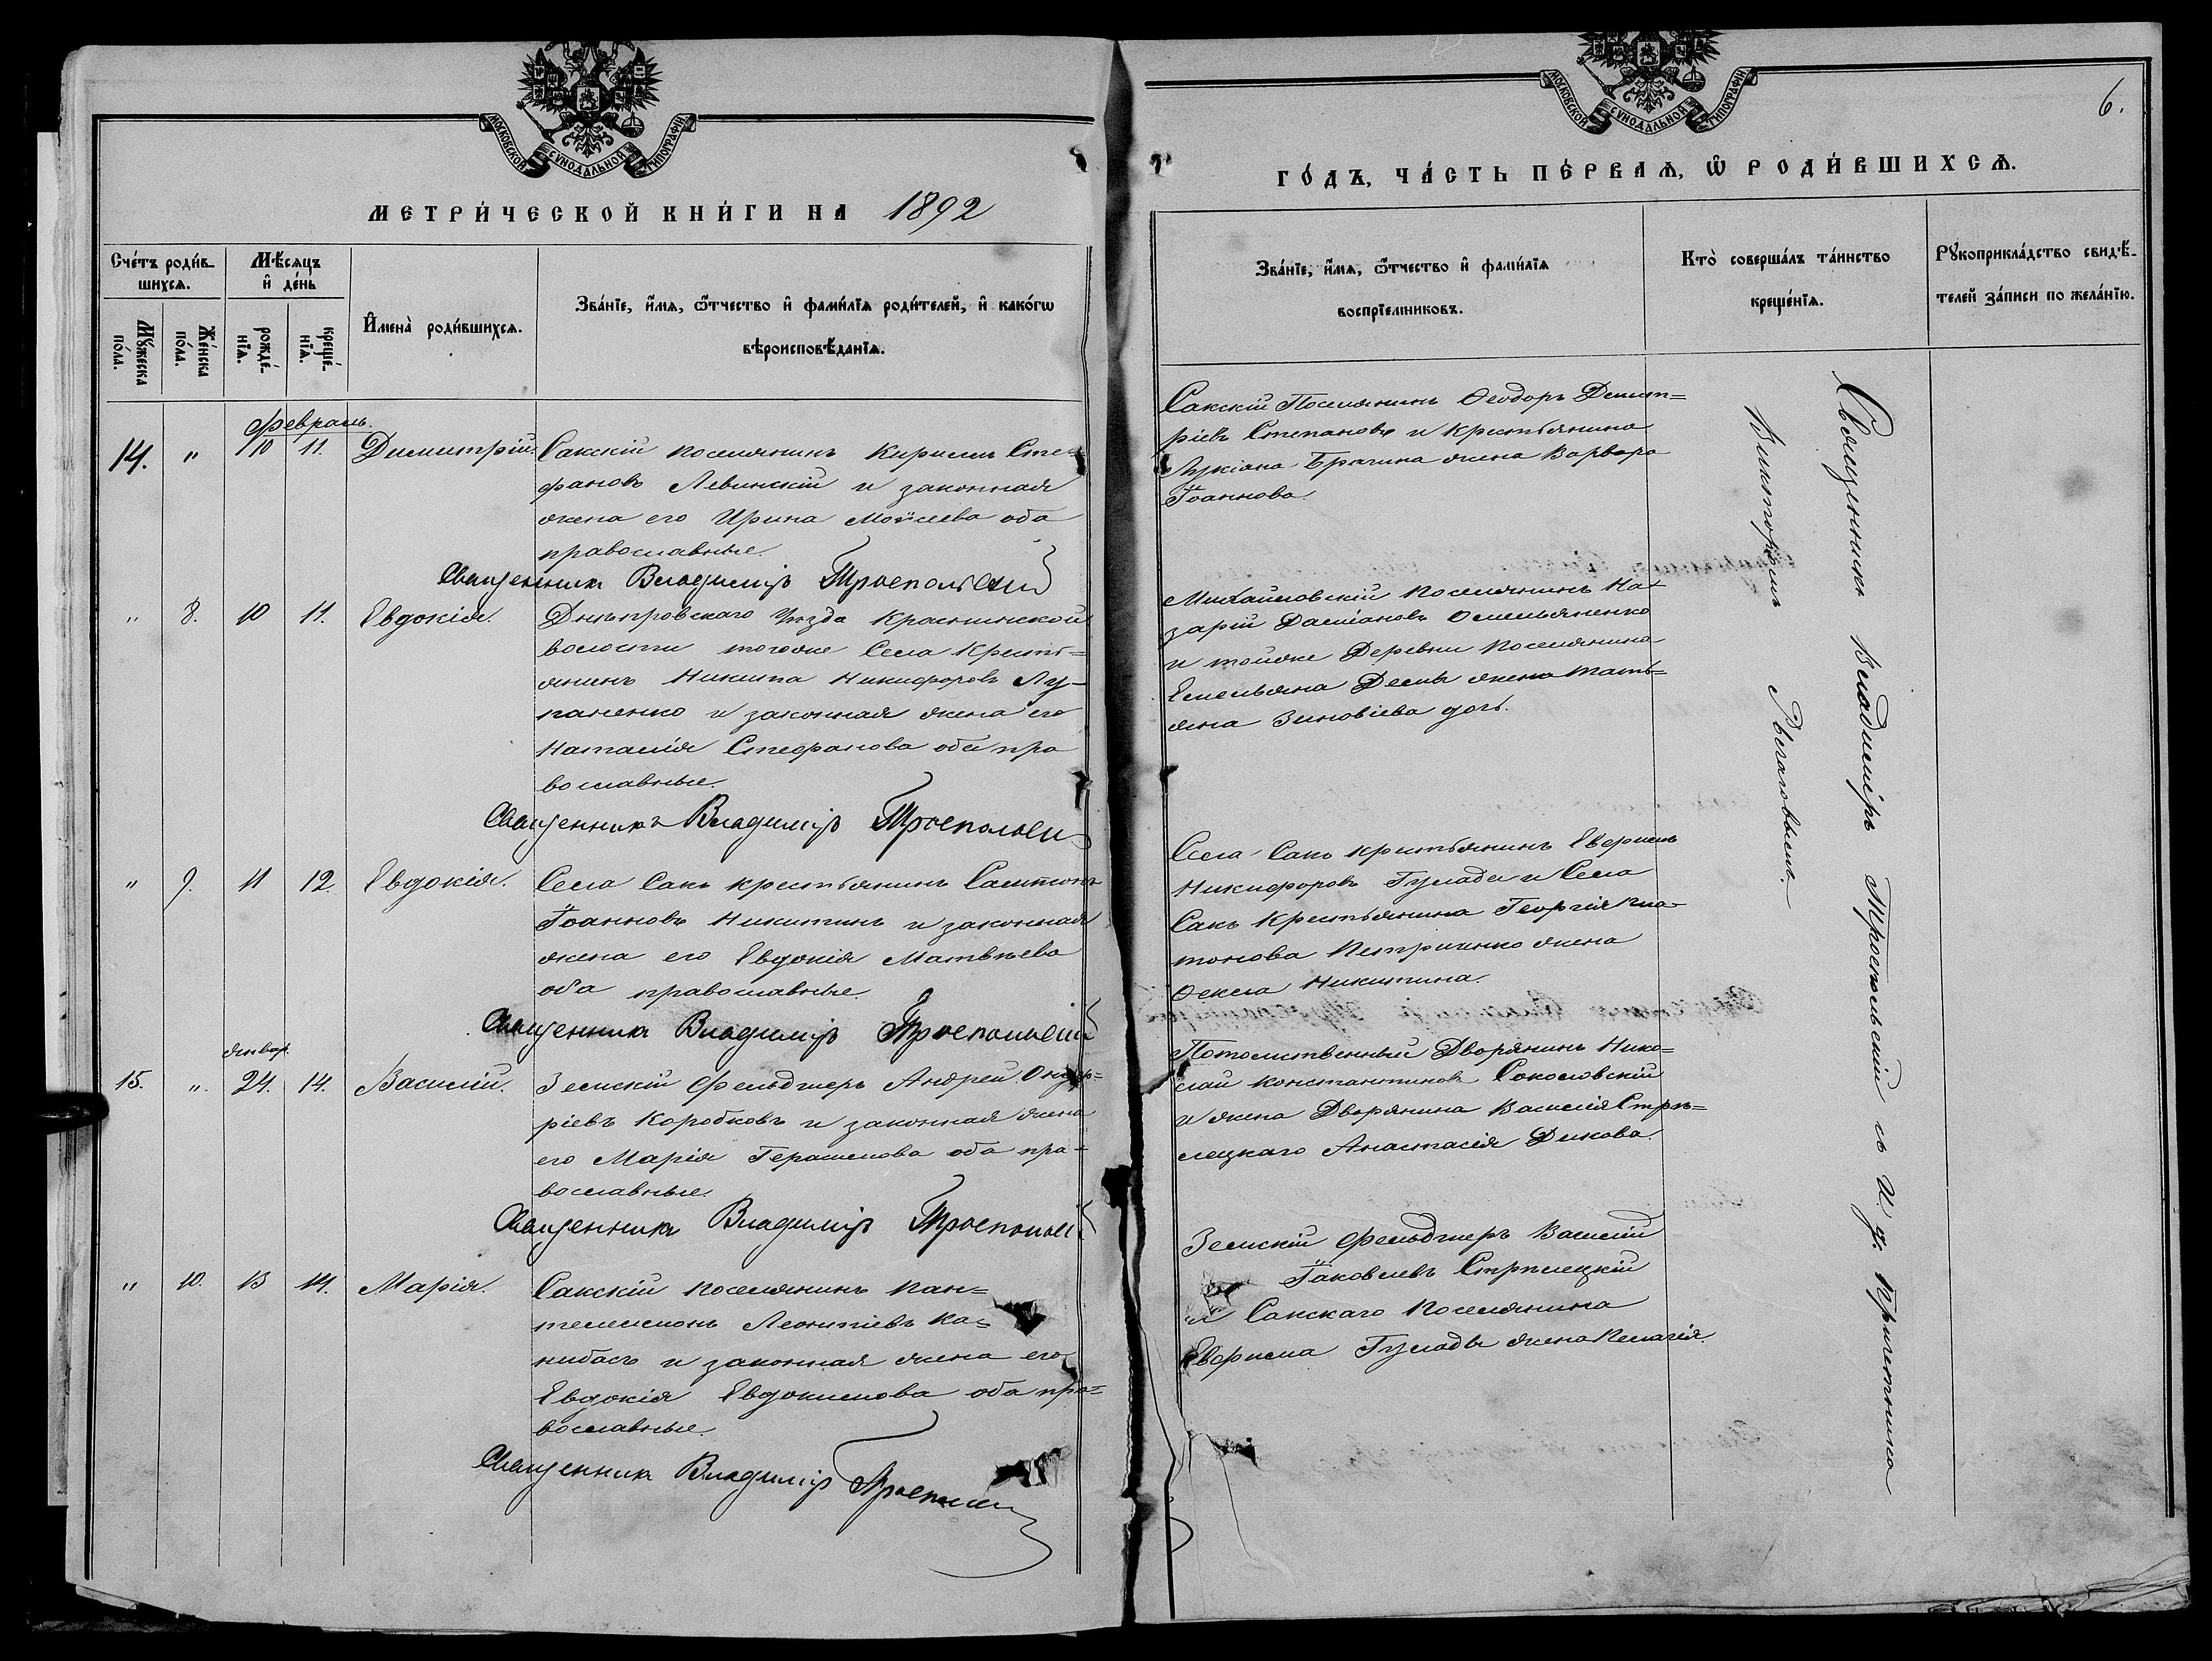 МОСКОВСКОЙ СѴНОДАЛЬНОЙ ТИПОГРАФІИ
МЕТРИ́ЧЕСКОЙ КНИ́ГИ НА 1892
Сче́тъ роди́в-
шихсѧ.
Мѣ́сѧцъ
и҆ де́нь
Мꙋ́жеска
по́ла.
Же́нска
по́ла.
рожде́-
нїѧ.
креще́-
нїѧ.
И҆мена̀ роди́вшихсѧ.
Зва́нїе, и҆́мѧ, ѻ҆́тчество и҆ фами́лїѧ роди́телей, и҆ како́гѡ
вѣроисповѣ́данїѧ.
Февраль.
14. " 10 11. Димитрій. Сакскій поселянинъ Кириллъ Сте-
фановъ Левинскій и законная
жена его Ирина Моѵсеева оба
православные.
Священникъ Владиміръ Троепольскій
" 8. 10 11. Евдокія. Днѣпровскаго уѣзда Краснинской
волости тогоже Села Кресть=
янинъ Никита Никифоровъ Лу-
паненко и законная жена его
Наталія Стефанова оба пра
вославные.
Священникъ Владиміръ Троепольскій
" 9. 11 12. Евдокія. Села Сакъ крестьянинъ Сампсонъ
Іоанновъ Никитинъ и законная
жена его Евдокія Матвѣева
оба православные.
Священникъ Владиміръ Троепольскій
Январ.
15. ". 24. 14. Василій. Земскій Фельдшеръ Андрей
ріевъ Коробковъ и законная жена
его Марія Герасимова оба пра-
вославные.
Священникъ Владиміръ Троепольскій
" 10. 13 14. Марія. Сакскій поселянинъ Пан=
телеимонъ Леонтіевъ Ка=
нибасъ и законная жена его
Евдокія Евдокимова оба пра=
вославные.
Священникъ Владиміръ Троепольскій
МОСКОВСКОЙ СѴНОДАЛЬНОЙ ТИПОГРАФІИ
6.
ГО́ДЪ, ЧА́СТЬ ПЕ́РВАѦ, Ѡ҆ РОДИ́ВШИХСѦ.
Зва́нїе, и҆́мѧ, ѻ҆́тчество и҆ фами́лїѧ
воспрїе́мниковъ.
Кто̀ соверша́лъ та́инство
креще́нїѧ.
Рꙋкоприкла́дство свидѣ́-
телей за́писи по жела́нїю.
Сакскій Поселянинъ Ѳеодоръ Димит=
ріевъ Степановъ и крестьянина
Лукіана Брагина жена Варвара
Іоаннова.
Михайловскій поселянинъ На-
зарій Даміановъ Омельяненко
и тойже Деревни поселянина
Емельяна Демы жена Тать=
яна Зиновіева дочь.
Села Сакъ крестьянинъ Евфимъ
Никифоровъ Гулада и Села
Сакъ Крестьянина Георгія Пла-
тонова Петриченко жена
Ѳекла Никитина.
Потомственный Дворянинъ Нико=
лай Константиновъ Соколовскій
и жена Дворянина Василія Стрѣ=
лецкаго Анастасія Дикова.
Земскій фельдшеръ Василій
Іаковлевъ Стрѣлецкій
и Сакскаго поселянина
Евфима Гулады жена Пелагія.
Священникъ Владиміръ Троепольскій съ И. д. Причетника
Викторомъ